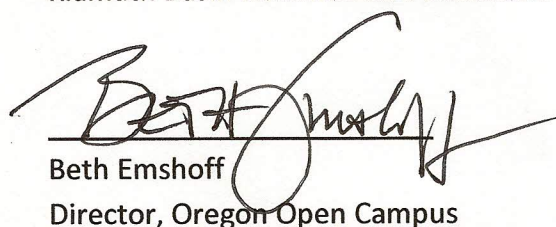 Beth Emshoff
Beth Emshoff
Director, Oregon Open Campus